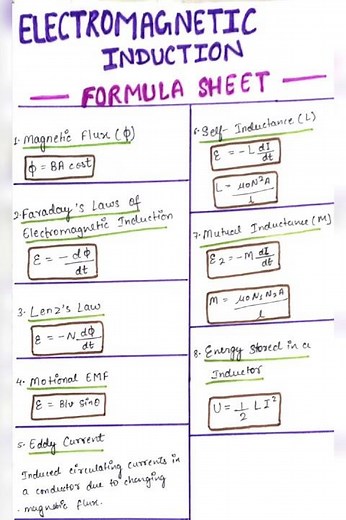 ELECTROMAGNETIC
INDUCTION
FORMULA SHEET
1. Magnetic Flux (ϕ)
ϕ = BA cost
2. Faraday's Laws of
Electromagnetic Induction
ε = - dϕ/dt
3. Lenz's Law
ε = -N dϕ/dt
4. Motional EMF
ε = Blv sinθ
5. Eddy Current
Induced circulating currents in
a conductor due to changing
magnetic flux.
6. Self-Inductance (L)
ε = -L dI/dt
L = μ0N²A/l
7. Mutual Inductance (M)
ε2 = -M dI/dt
M = μ0N1N2A/l
8. Energy Stored in a
Inductor
U = 1/2 LI²